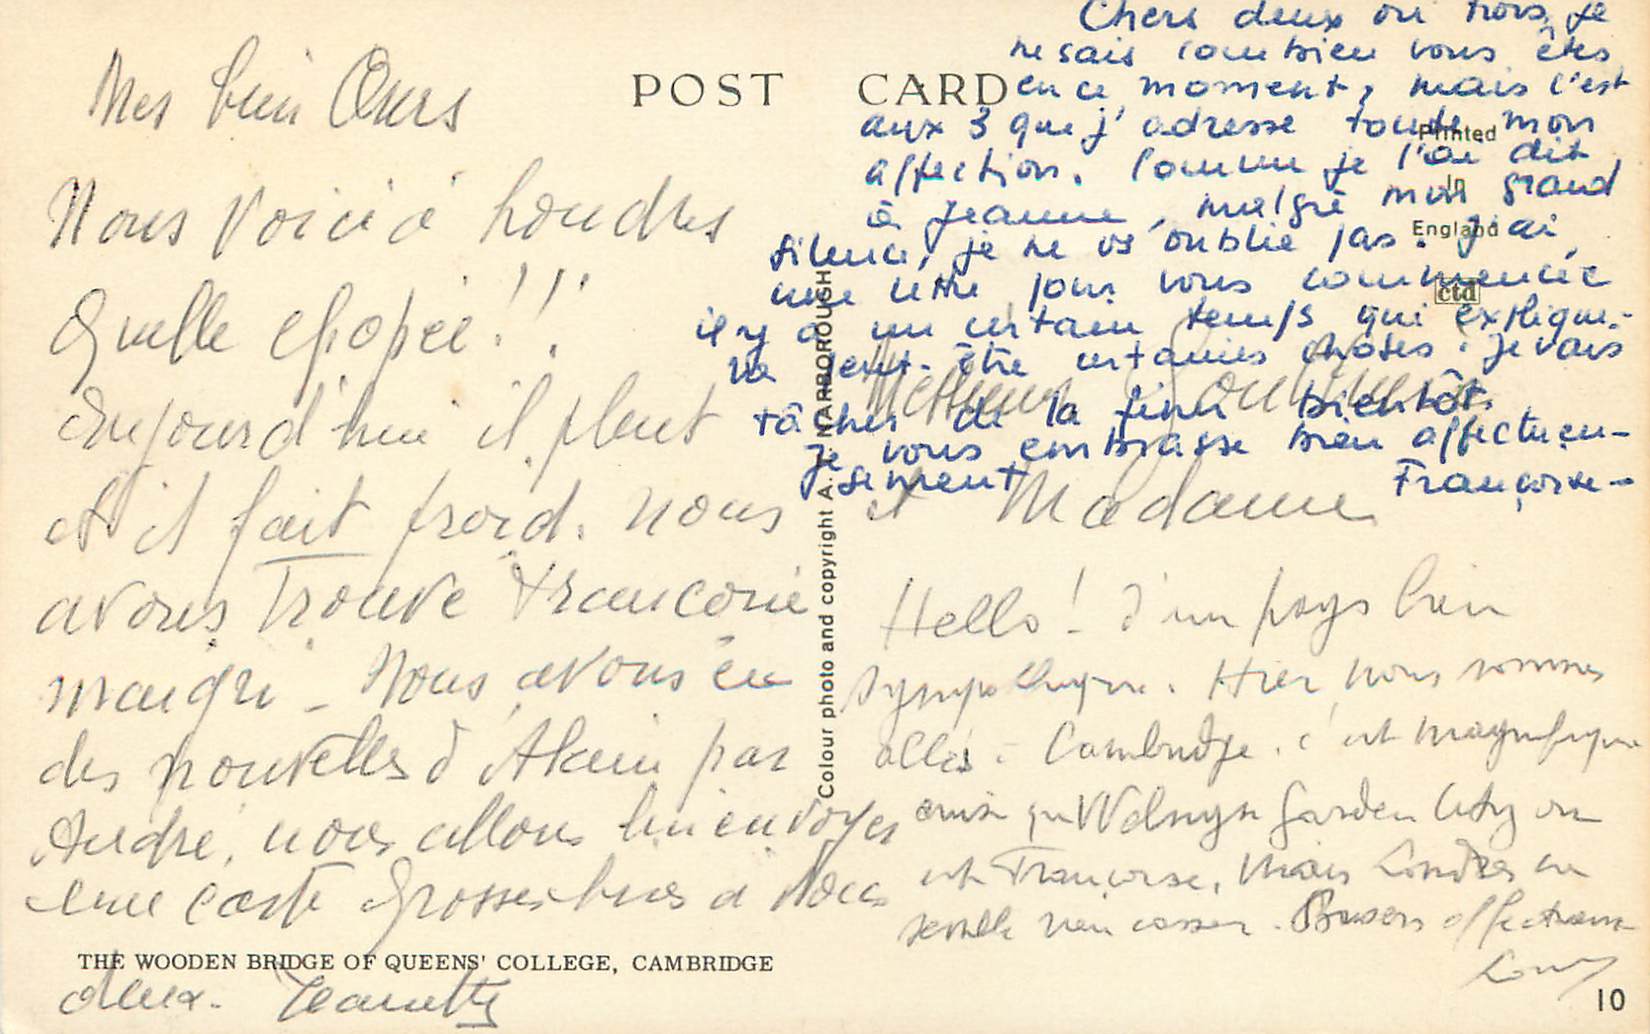 POST CARD
Mes bien Ours
Nous voici à Londres
Quelle épopée !!!
Aujourd'hui il pleut
et il fait froid. Nous
avons trouvé Francoise
maigri _ Nous avons eu
des nouvelles d'Alain par
André, nous allons lui envoyer
une carte Grosses bises à vous
deux. Jeannette
Chers deux ou trois, je
ne sais combien vous êtes
en ce moment, mais c'est
aux 3 que j'adresse toute mon
affection. Comme je l'ai dit
à Jeanne, malgré mon grand
silence, je ne vs oublie pas. J'ai
une lettre pour vous commencée
il y a un certain temps qui explique-
ra peut-être certaines choses. Je vais
tâcher de la finir bientôt.
Je vous embrasse bien affectueu-
sement Françoise -
Printed
in
England
ctd
Monsieur
et Madame
Hello ! d'un pays bien
sympathique. Hier nous sommes
allés à Cambridge. c'est magnifique
ainsi que Welwyn Garden City où
est Françoise, mais Londres ne
semble rien casser. Baisers affectueux
Colour photo and copyright A. NARBOROUGH
THE WOODEN BRIDGE OF QUEENS' COLLEGE, CAMBRIDGE
10